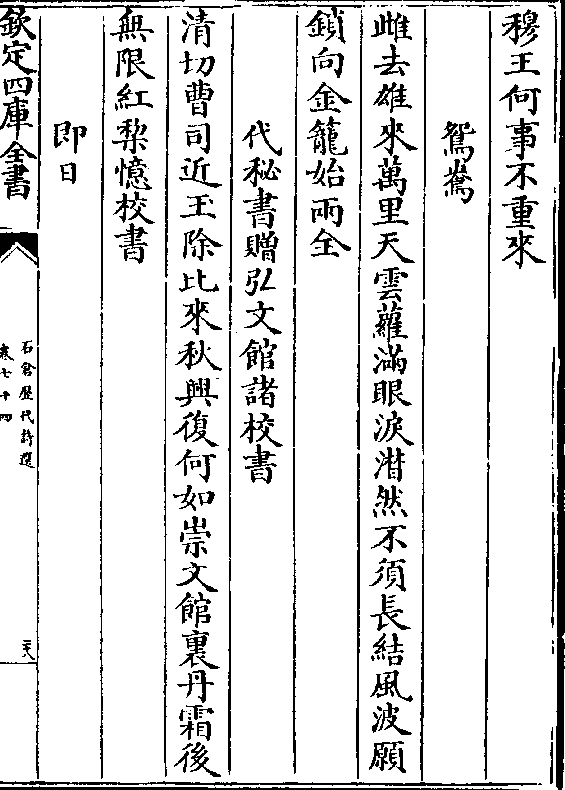 穆王何事不重來
鴛鴦
雌去雄來萬里天雲蘿滿眼淚潸然不須長結風波願
鎖向金籠始兩全
代秘書贈弘文館諸校書
清切曹司近玉除比來秋興復何如崇文館裏丹霜後
無限紅棃憶校書
即日
欽定四庫全書
石倉歷代詩選
卷七十四